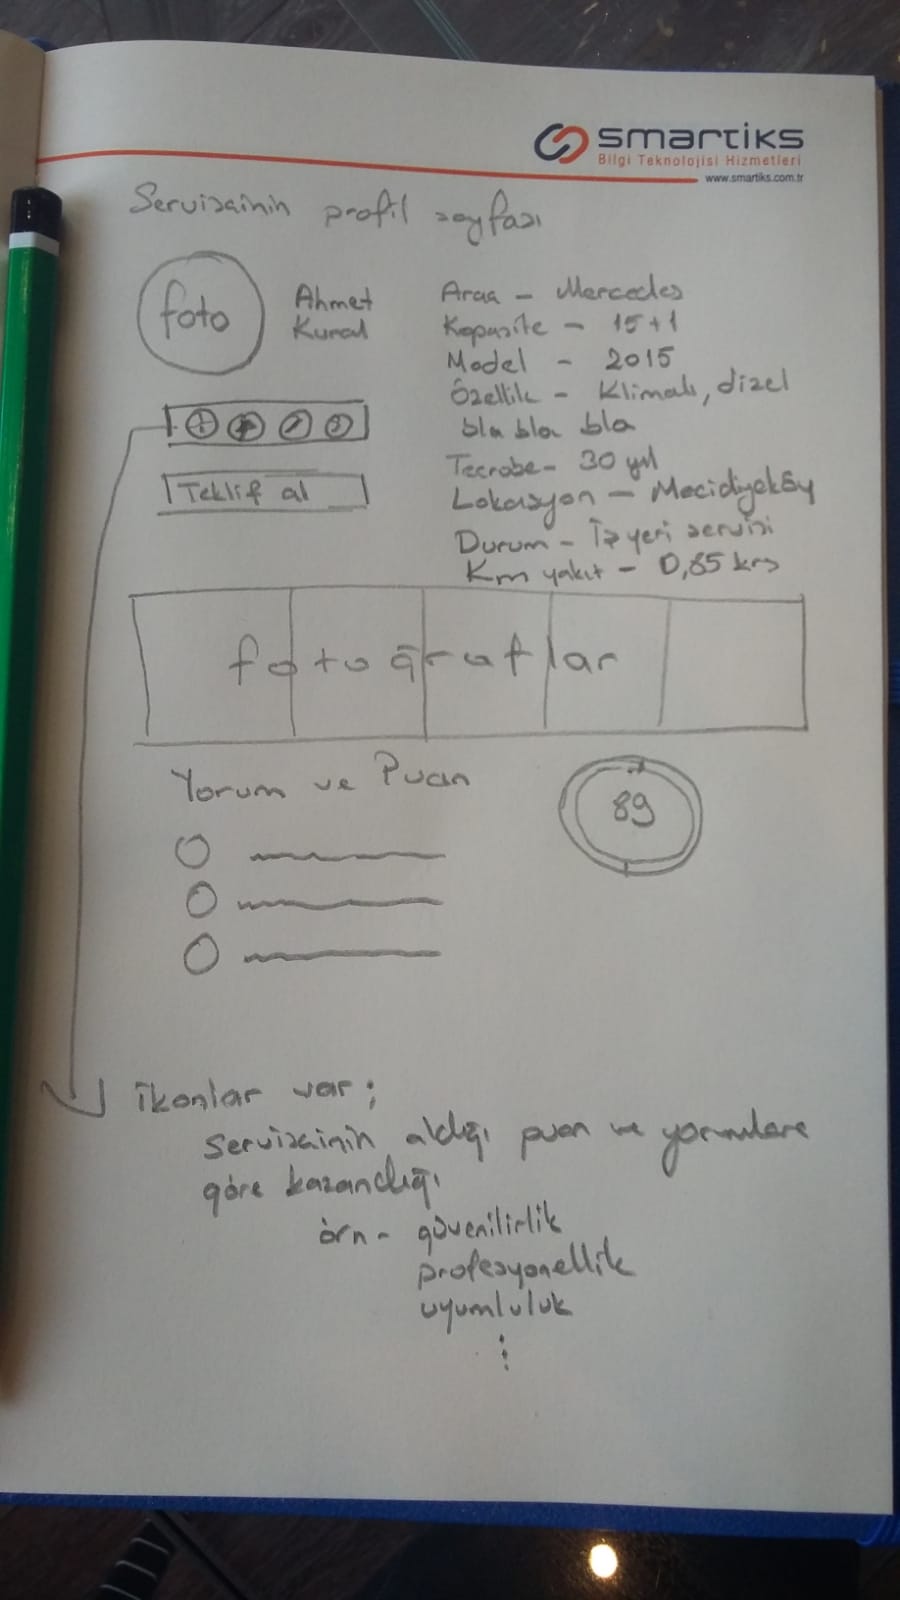 smartiks
Bilgi Teknolojisi Hizmetleri
www.smartiks.com.tr
Servisçinin profil sayfası
foto
Ahmet
Kural
Araç - Mercedes
Kapasite - 15+1
Model - 2015
Özellik - Klimalı, dizel
bla bla bla
Tecrübe - 30 yıl
Lokasyon - Mecidiyeköy
Durum - İş yeri servisi
Km yakıt - 0,85 krş
Teklif al
fotoğraflar
Yorum ve Puan
89
İkonlar var;
Servisçinin aldığı puan ve yorumlara
göre kazandığı
örn - güvenilirlik
profesyonellik
uyumluluk